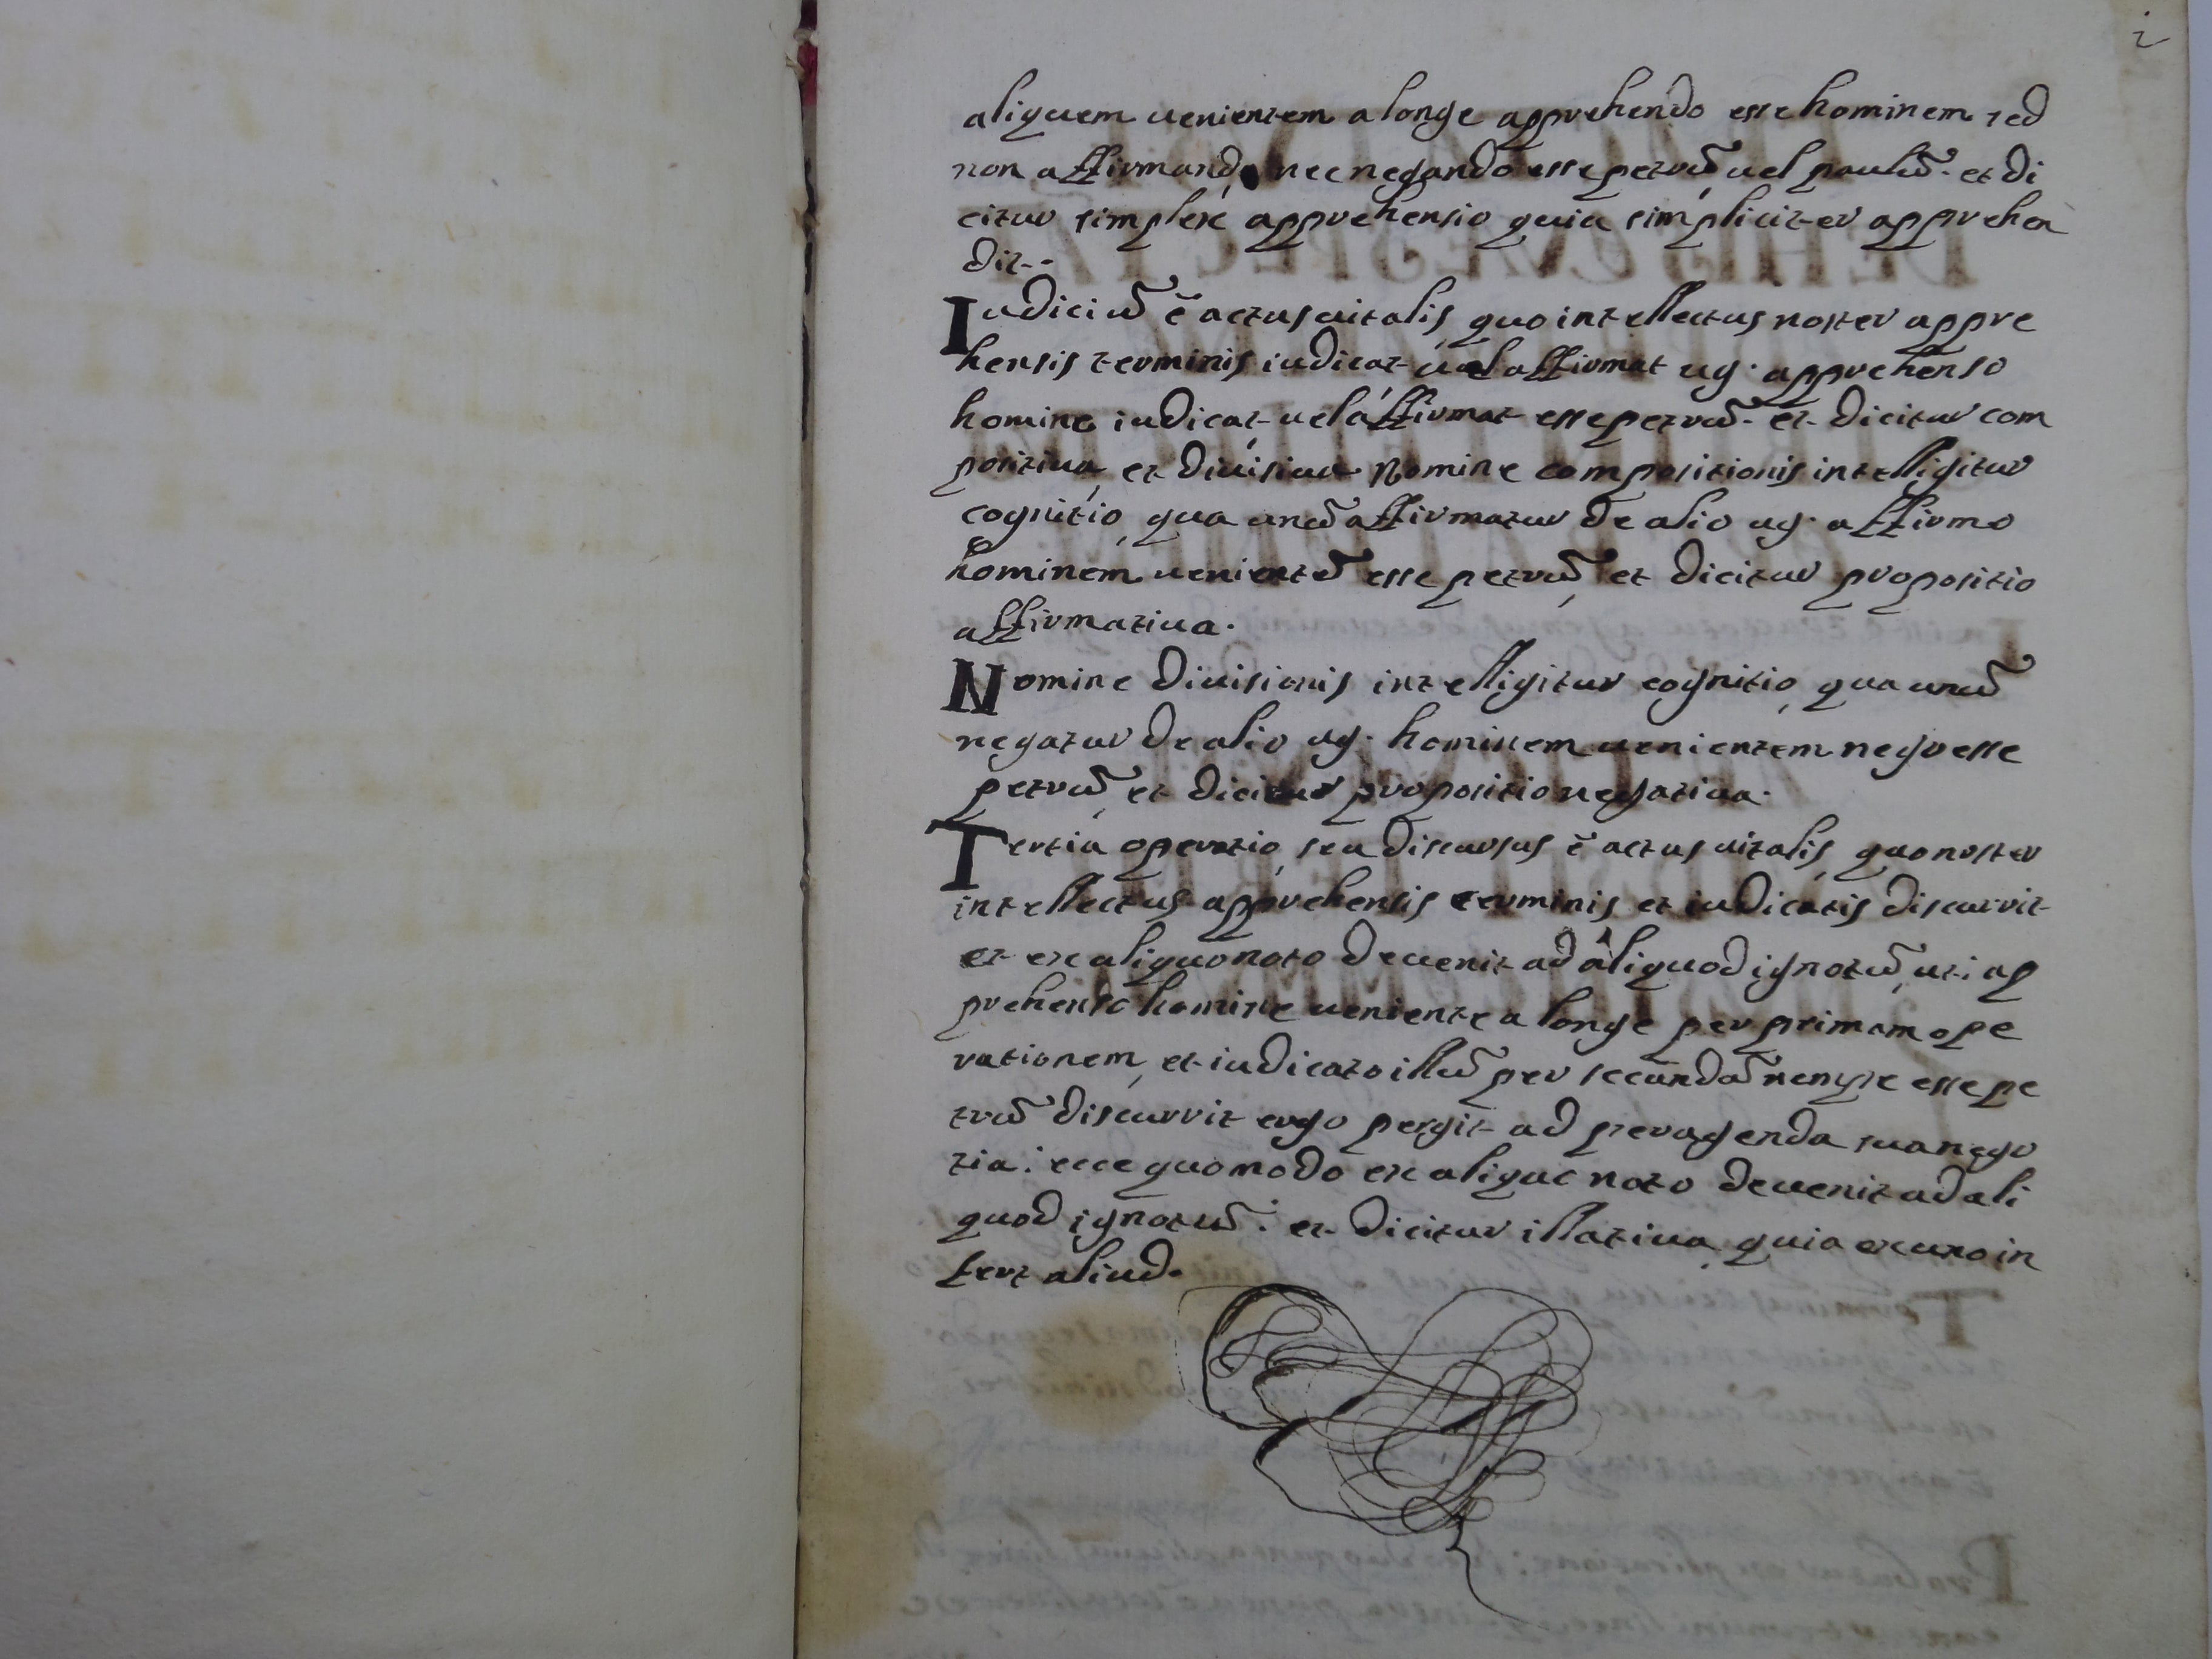 2
aliquem uenientem a longe apprehendo esse hominem sed
non affirmando, nec negando esse petrũ, uel paulũ. et di
citur simplex apprehensio quia simpliciter apprehen
dit..
Iudiciũ ẽ actus uitalis, quo intellectus noster appre
hensis terminis iudicat, uel affirmat ug. apprehenso
homine iudicat, uel affirmat esse petrũ. et dicitur com
positiua, et diuisiua Nomine compositionis intelligitur
cognitio, qua unũ affirmatur de alio ug. affirmo
hominem uenientẽ esse petrũ, et dicitur propositio
affirmatiua.
Nomine diuisionis intelligitur cognitio, qua unũ
negatur de alio ug. hominem uenientem nego esse
petrũ, et dicitur propositio negatiua.
Tertia operatio, seu discursus ẽ actus uitalis, quo noster
intellectus apprehensis terminis, et iudicatis discurrit
et ex aliquo noto deuenit ad aliquod ignotũ, uti ap
prehenso homine ueniente a longe per primam ope
rationem, et iudicato illũ per secundã nempe esse pe
trũ discurrit ergo pergit ad peragenda sua nego
tia: ecce quomodo ex aliquo noto deuenit ad ali
quod ignotũ: et dicitur illatiua, quia ex uno in
fert aliud.